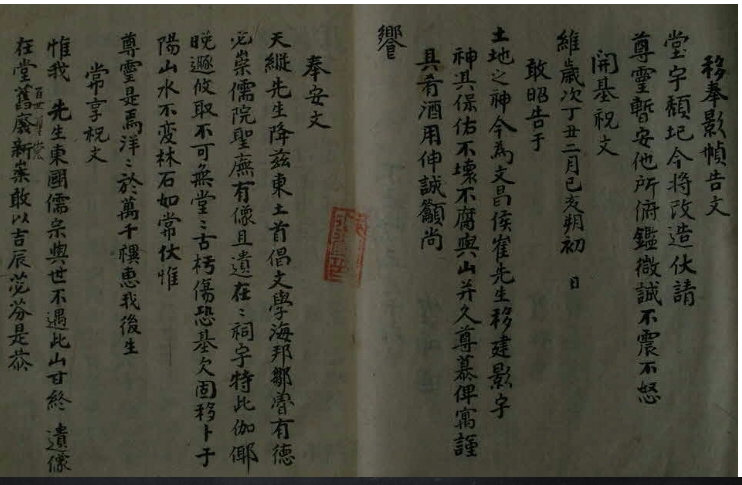 移奉影幀告文
堂宇頹圮今將改造伏請
尊靈暫安他所俯鑑微誠不震不怒
開基祝文
維歲次丁丑二月己亥朔初 日
敢昭告于
土地之神今為文昌侯崔先生移建影宇
神其保佑不壞不腐與山并久尊慕俾寓謹
具肴酒用伸誠籲尚
饗
奉安文
天縱先生降茲東土首倡文學海邦鄒魯有德
必崇儒院聖廡有像且遺在〻祠宇特此伽倻
晚遯攸取不可無堂〻古朽傷恐基欠固移卜于
陽山水不変林石如常伏惟
尊靈是焉洋〻於萬千禩惠我後生
常享祝文
惟我 先生東國儒宗與世不遇此山甘終 遺像
在堂舊廢新崇敢以吉辰苾芬是恭